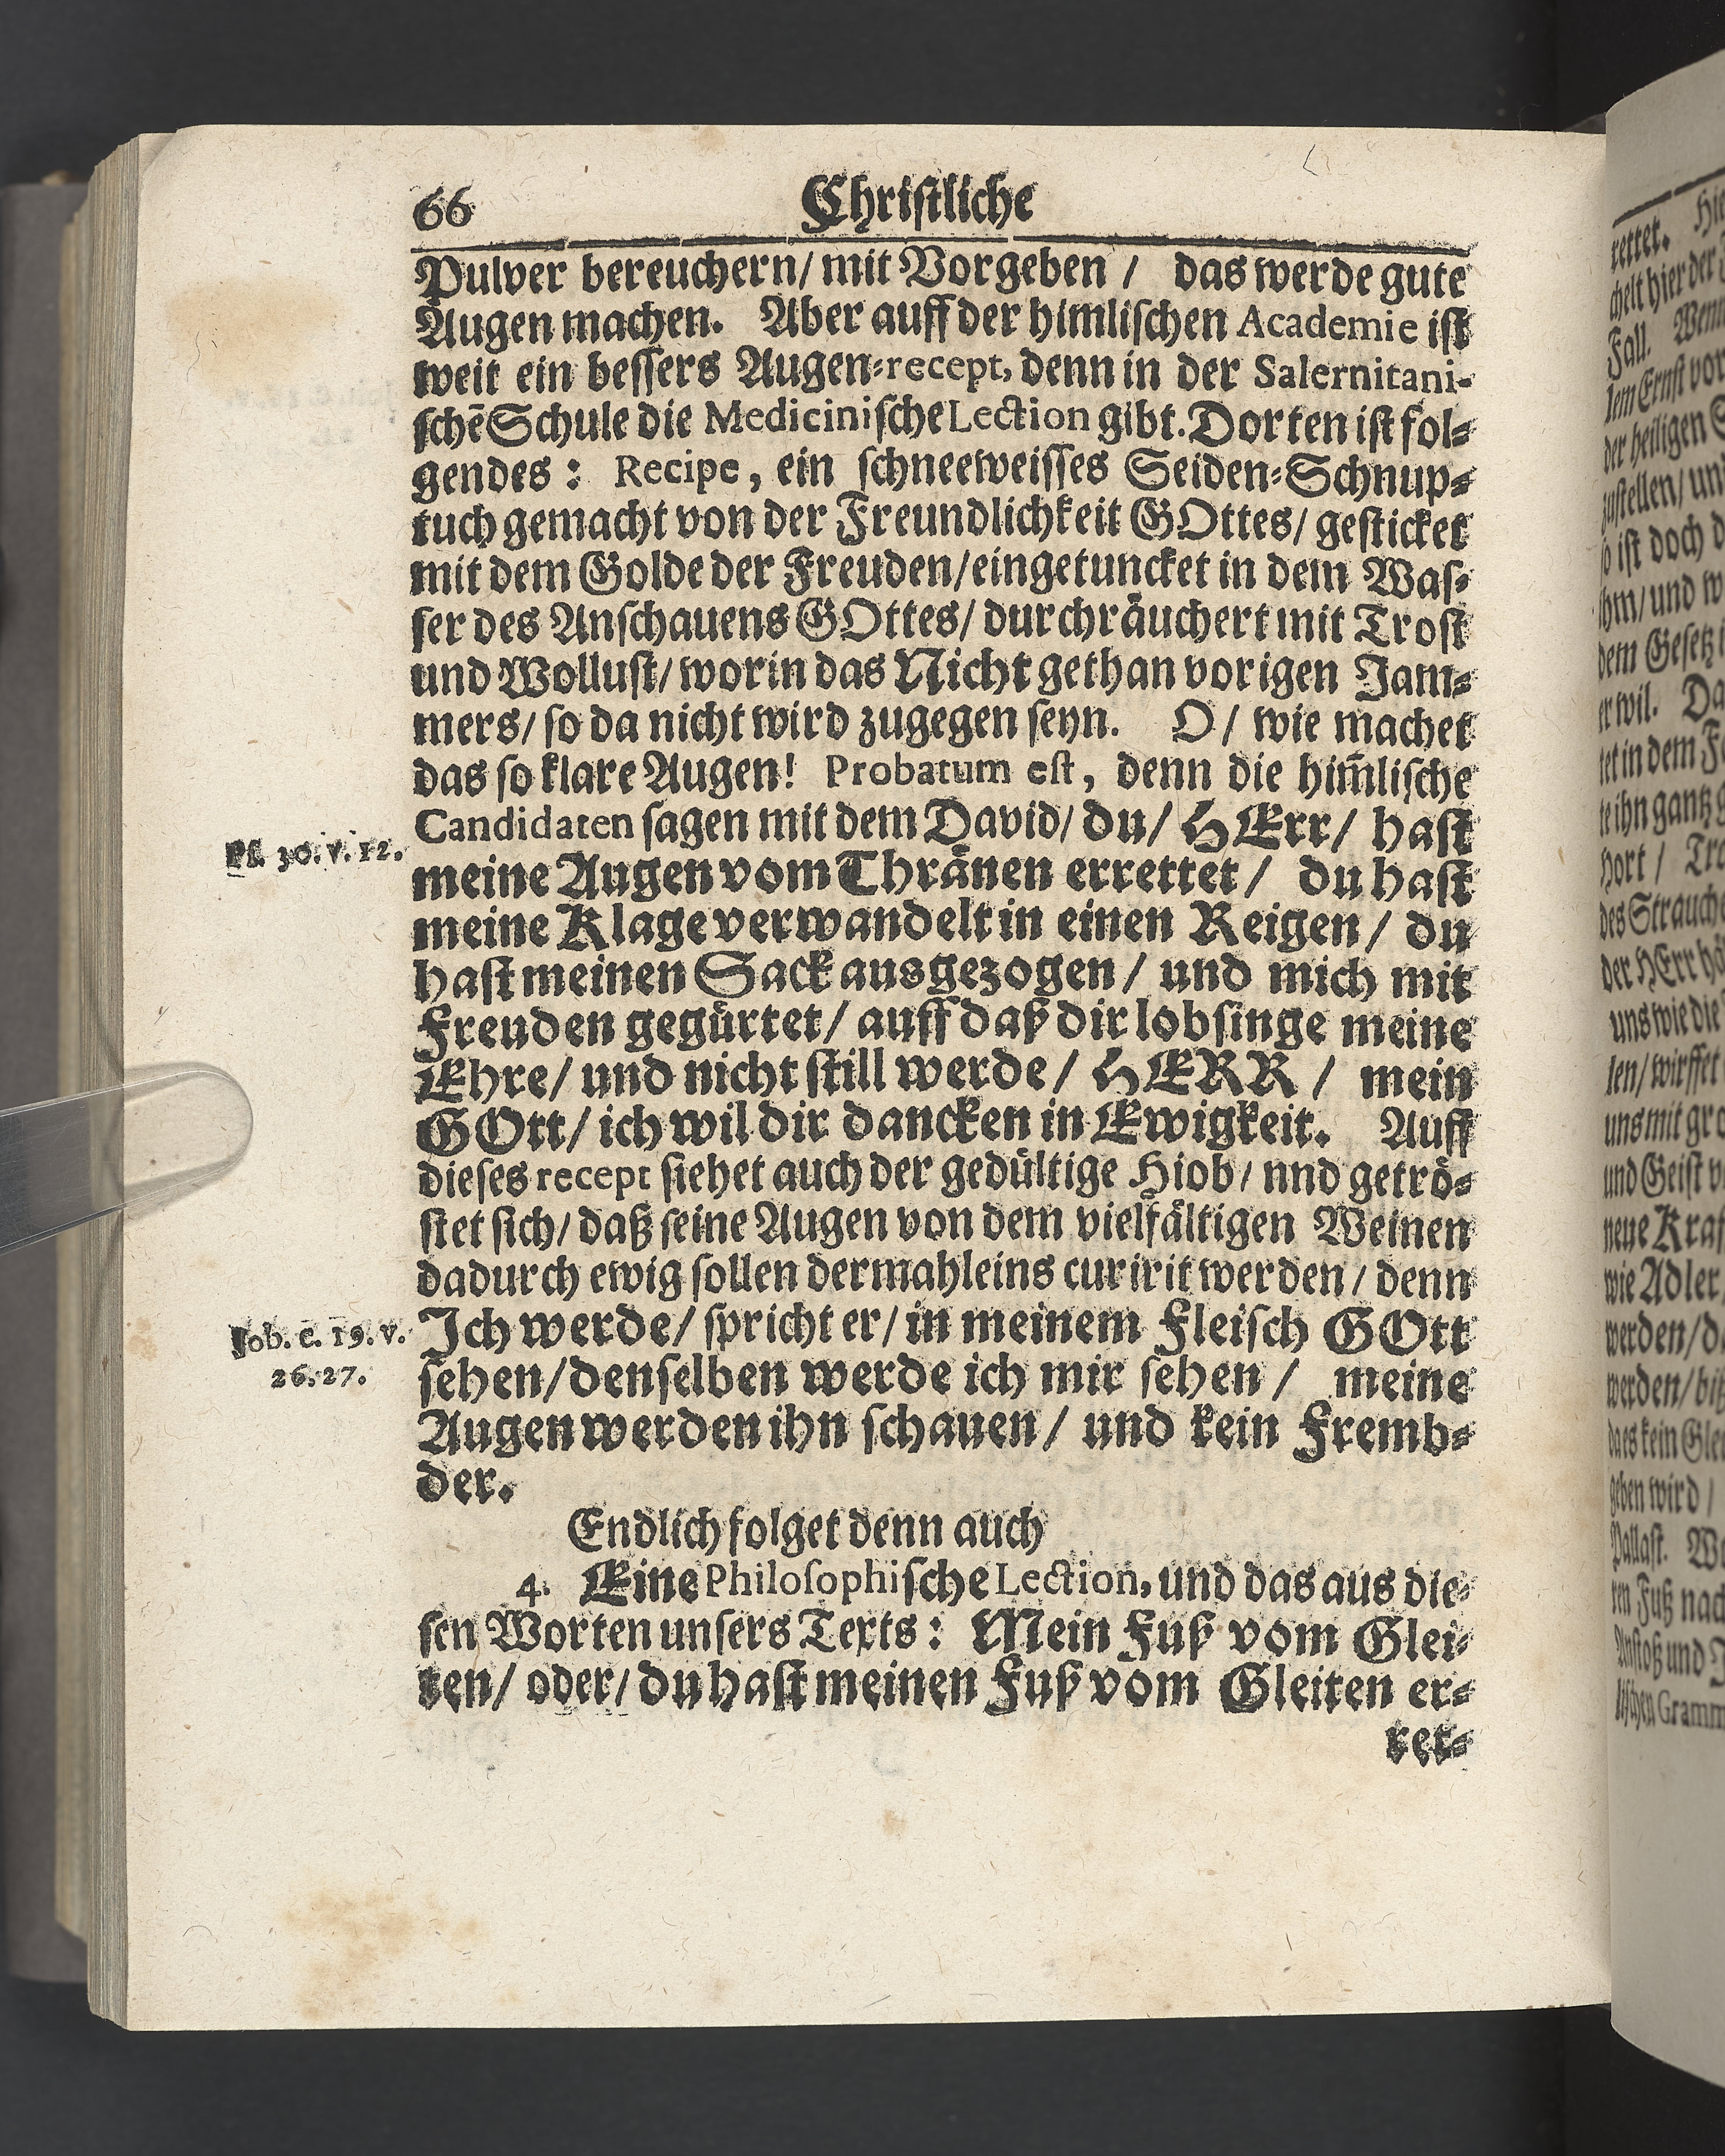 66 Chriſtliche
Pulver bereuchern/ mit Vorgeben / das werde gute
Augen machen. Aber auff der himliſchen Academie iſt
weit ein beſſers Augen-recept, denn in der Salernitani-
ſchē Schule die Mediciniſche Lection gibt. Dorten iſt fol-
gendes : Recipe, ein ſchneeweiſſes Seiden-Schnup-
tuch gemacht von der Freundlichkeit GOttes/ geſticket
mit dem Golde der Freuden/ eingetuncket in dem Waſ-
ſer des Anſchauens GOttes/ durchräuchert mit Troſt
und Wolluſt/ worin das Nicht gethan vorigen Jam-
mers/ ſo da nicht wird zugegen ſeyn. O/ wie machet
das ſo klare Augen! Probatum eſt, denn die him̃liſche
Candidaten ſagen mit dem David/ du/ HErr/ haſt
Pſ. 30. v. 12.
meine Augen vom Thränen errettet/ du haſt
meine Klage verwandelt in einen Reigen/ du
haſt meinen Sack ausgezogen/ und mich mit
Freuden gegürtet/ auff daß dir lobſinge meine
Ehre/ und nicht ſtill werde/ HERR / mein
GOtt/ ich wil dir dancken in Ewigkeit. Auff
dieſes recept ſiehet auch der gedültige Hiob/ nnd getrö-
ſtet ſich/ daß ſeine Augen von dem vielfältigen Weinen
dadurch ewig ſollen dermahleins curirit werden/ denn
Job. c. 19. v.
26. 27.
Ich werde/ ſpricht er/ in meinem Fleiſch GOtt
ſehen/ denſelben werde ich mir ſehen/ meine
Augen werden ihn ſchauen/ und kein Fremb-
der.
Endlich folget denn auch
4. Eine Philoſophiſche Lection, und das aus die-
ſen Worten unſers Texts: Mein Fuß vom Glei-
ten/ oder/ du haſt meinen Fuß vom Gleiten er-
ret-